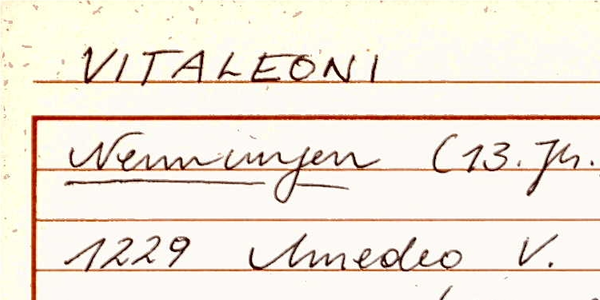 VITALEONI
Nennungen (13. Jh.
1229 Amedeo V.